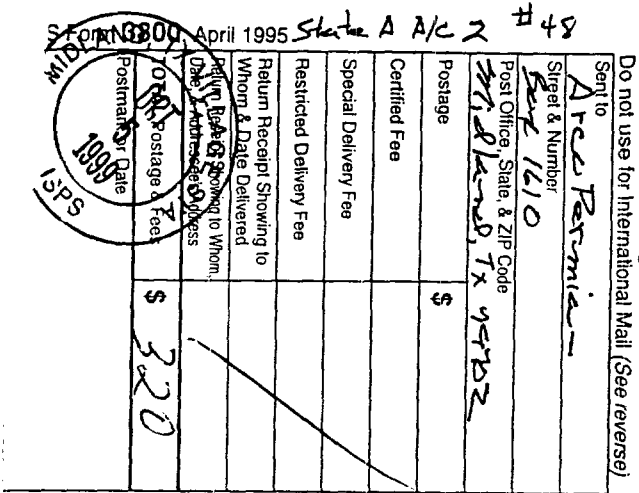 Do not use for International Mail (See reverse)
Sent to
Arco Permian
Street & Number
Box 1610
Post Office, State, & ZIP Code
Midland, Tx 79702
Postage
$
Certified Fee
Special Delivery Fee
Restricted Delivery Fee
Return Receipt Showing to
Whom & Date Delivered
Return Receipt Showing to Whom,
Date, & Addressee's Address
TOTAL Postage & Fees
$ 320
Postmark or Date
1999
USPS
S Form 3800, April 1995
State A A/c 2 #48